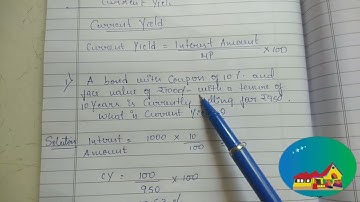 Current Yield
Current Yield
Current Yield = Interest Amount × 100
MP
1) A bond with Coupon of 10% and
face value of ₹1000/- with a tenure of
10 Years is Currently selling for ₹950.
what is Current
Solution Interest = 1000 × 10
Amount 100
CY = 100 × 100
950